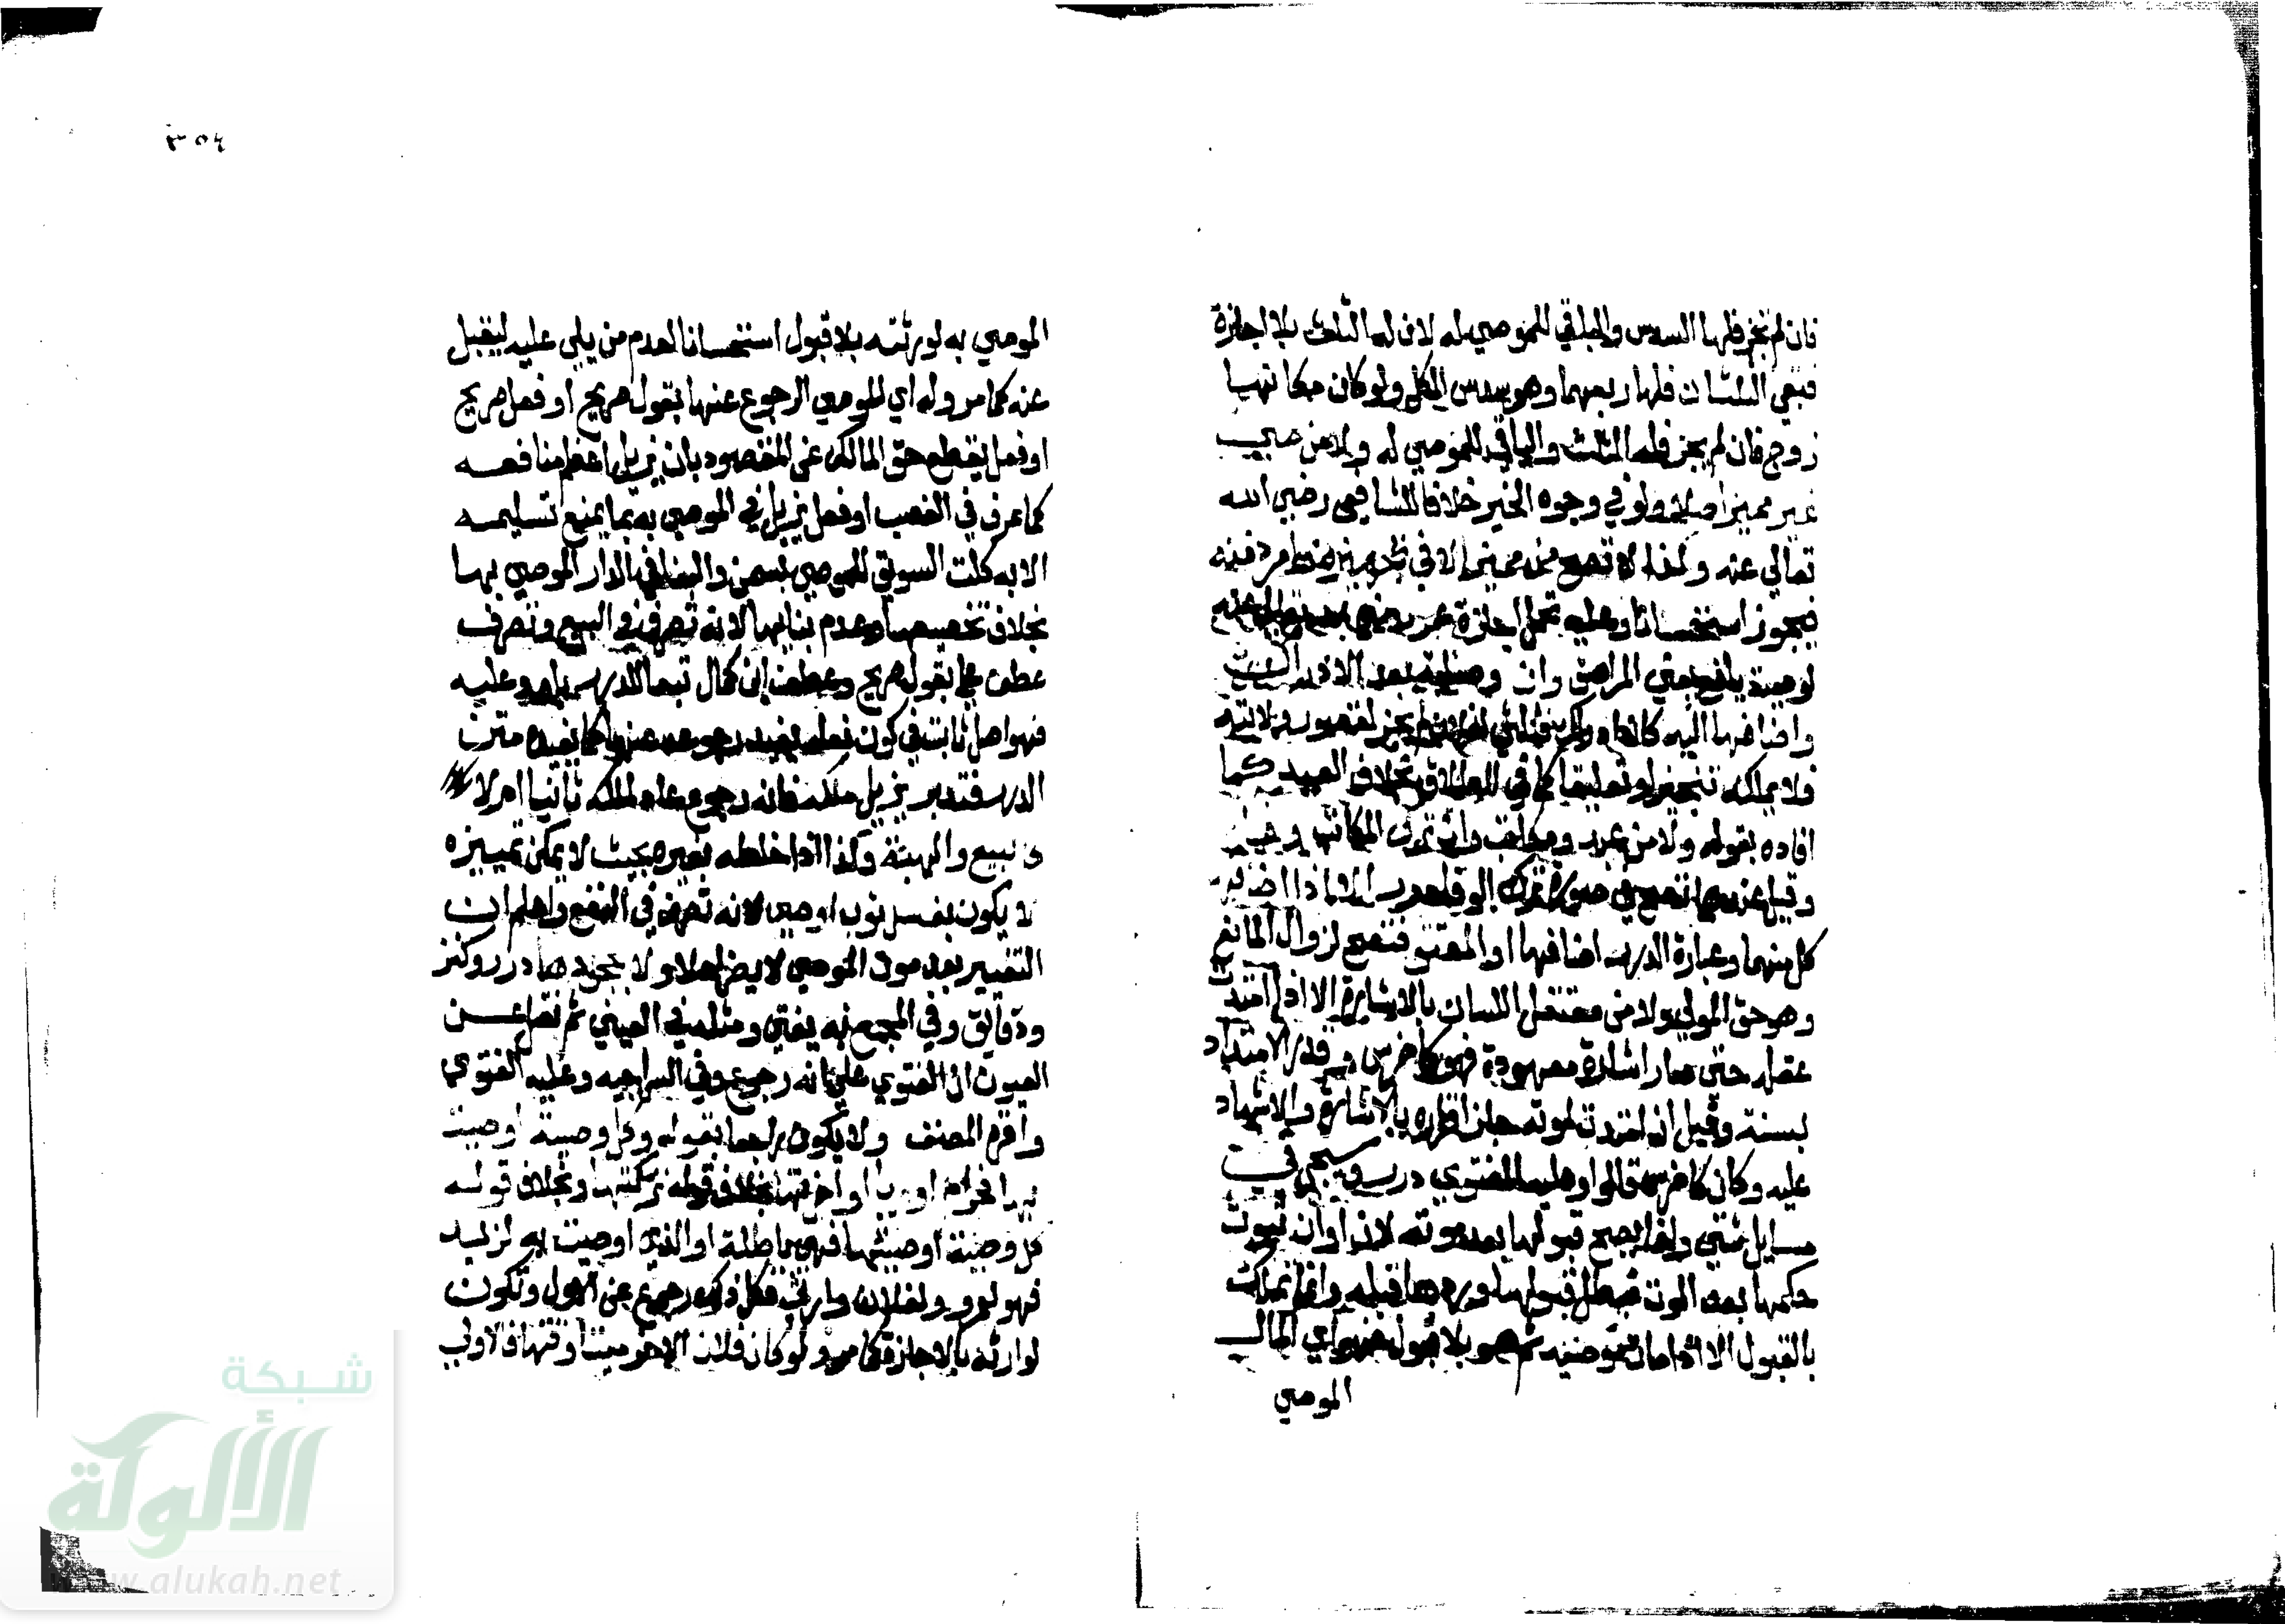 فان لم تجز فلها السدس والباقي للموصي له لان له الثلث بلا اجازة
فبقي الثلثان فلها ربعهما وهو سدس الكل ولو كان مكانها
زوج فان لم يجز فله الثلث والباقي للموصي له ولا من صبي
غير مميز اصلا ولو في وجوه الخير خلافا للشافعي رضي الله
تعالي عنه وكذا لا تصح من مميز الا في تجهيزه وامر دفنه
فيجوز استحسانا وعليه تحمل اجازة عمر رضي الله تعالي عنه
لوصية يافع يعني المراهق وان مات بعد الادراك
واضافها اليه كان ادركت فثلثي لفلان لم يجز لقصور ولايته
فلا يملكه تنجيزا وتعليقا كما في الطلاق بخلاف العبد كما
افاده بقوله ولا من عبد ومكاتب وان ترك المكاتب وفا
وقيل عندهما تصح في صورة ترك الوفا درر الا اذا اضاف
كل منهما وعبارة الدرر اضافها او المعتق فتصح لزوال المانع
وهو حق المولي ولا من معتقل اللسان بالاشارة الا اذا امتدت
عقلته حتي صار اشارة معهودة فهو كاخرس وقدر الامتداد
بسنة وقيل ان امتدت لموته جاز اقراره بالاشارة والاشهاد
عليه وكان كاخرس قالوا وعليه الفتوي درر وسيجي في
مسايل شتي وانما يصح قبولها بعد موته لان اوان ثبوت
حكمها بعد الموت فبطل قبولها وردها قبله وانما تملك
بالقبول الا اذا مات موصيه ثم هو بلا قبول فهو اي المال
الموصي
٣٥٤
الموصي به لورثته بلا قبول استحسانا لعدم من يلي عليه ليقبل
عنه كما مر وله اي للموصي الرجوع عنها بقول صريح او فعل صريح
او فعل يقطع حق المالك عن المغصوب بان يزيل اعظم منافعه
كما عرف في الغصب او فعل يزيد في الموصي به بما يمنع تسليمه
الا به كلت السويق للموصي بسمن والبنا في الدار الموصي بها
بخلاف تجصيصها وهدم بنائها لانه تصرف في البيع وتصرف
عطف علي بقول صريح وعطف ابن كمال تبعا للدرر باو وعليه
فهو اصل ثابت في كون فعله يفيد رجوعه عنها كما يفيده متن
الدرر فتدبر يزيل ملكه فانه رجوع عاد لملكه ثانيا ام لا
كالبيع والهبة وكذا اذا خلطه بغيره بحيث لا يمكن تمييزه
لا يكون بغسل ثوب اوصي لانه تصرف في النفع واعلم ان
التغيير بعد موت الموصي لا يضر اصلا ولا بجحد صا درر وكنز
ودقايق وفي المجمع به يفتي ومثله في العيني ثم نقل عن
العيون ان الفتوي علي انه رجوع وفي السراجيه وعليه الفتوي
واقره المصنف ولا يكون راجعا بقوله وكل وصية اوصيت
بها فحرام او ربا او اخرتها بخلاف قوله تركتها وبخلاف قوله
كل وصية اوصيتها فهي باطلة او الذي اوصيت به لزيد
فهو لعمرو ولفلان وارثي فكل ذلك رجوع عن الاول وتكون
لوارثه بالاجازة كما مر ولو كان فلان الاخر ميتا وقتها فالاولي
شبكة
الألوكة
www.alukah.net